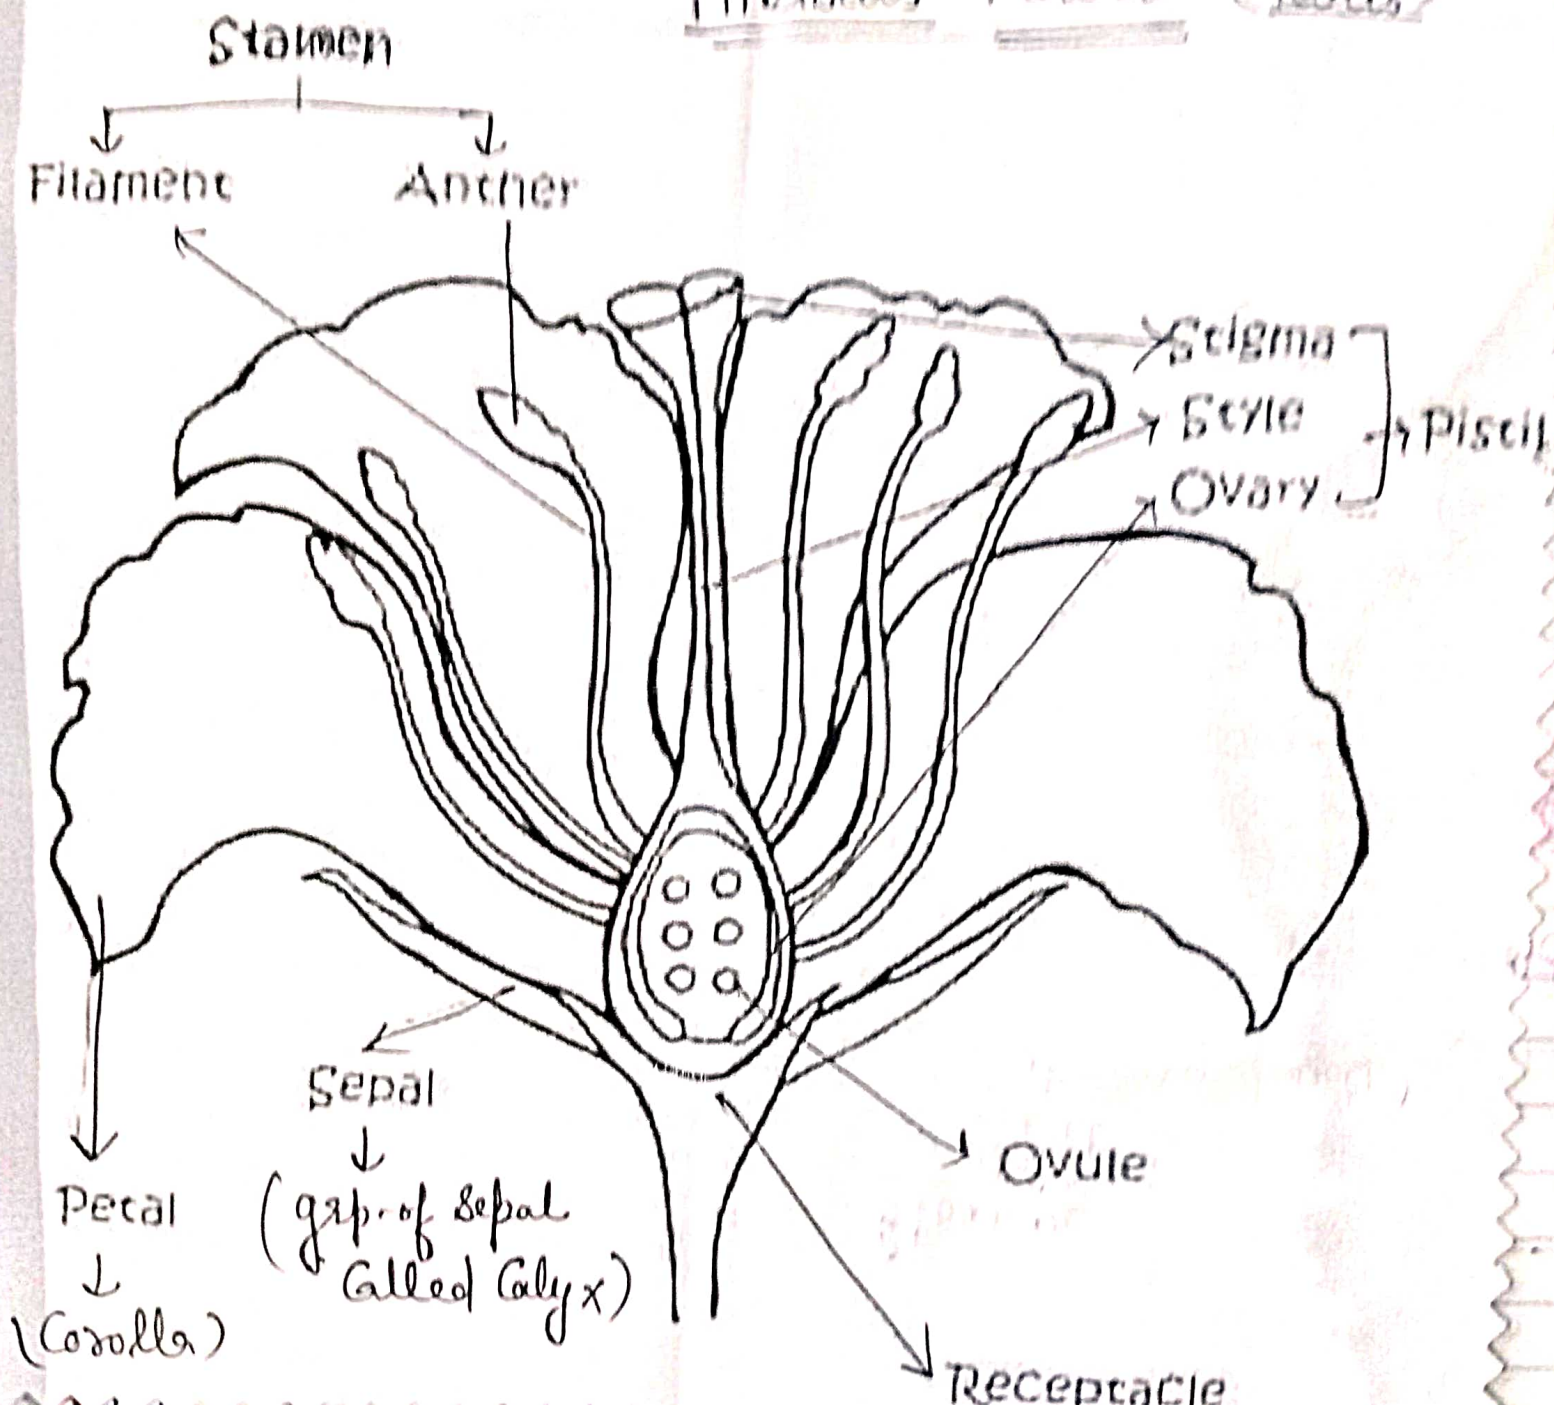 Stamen
Filament
Anther
Stigma
Style
Ovary
Pistil
Sepal
(grp. of Sepal
Called Calyx)
Petal
(Corolla)
Ovule
Receptacle